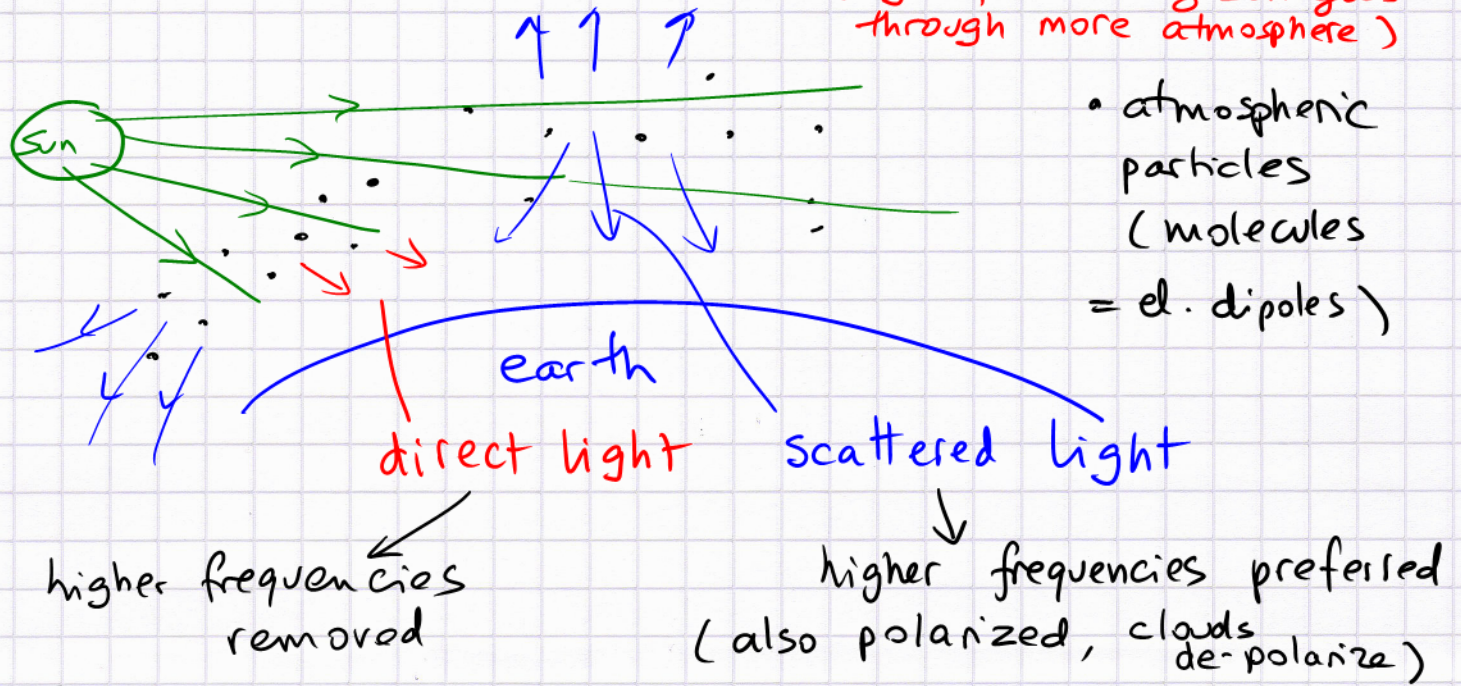 through more atmosphere)
sun
• atmospheric
particles
(molecules
= el. dipoles)
earth
direct light
scattered light
higher frequencies
removed
higher frequencies preferred
(also polarized, clouds
de-polarize)